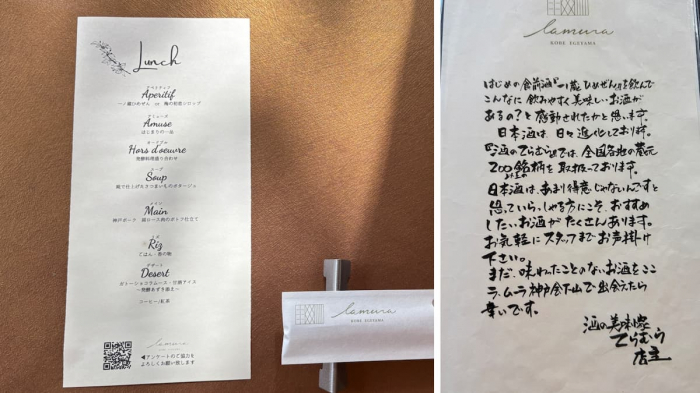 Lunch
アペリティフ
Aperitif
アミューズ
Amuse
はじまりの一品
オードブル
Hors d'oeuvre
発酵料理盛り合わせ
スープ
Soup
炙り仕上げ丸さつまいものポタージュ
メイン
Main
神戸ポーク 肩ロース肉のポトフ仕立て
リズ
Riz
ごはん・香の物
デザート
Desert
ガトーショコラムース・甘酒アイス
～発酵あずき添え～
コーヒー/紅茶
lamura
◀アンケートのご協力を
よろしくお願い致します
lamura
KOBE EGEYAMA
lamura
KOBE EGEYAMA
はじめの食前酒「一蔵ひめぜん」を飲んで
こんなに飲みやすく美味しいお酒が
あるの?と感動されたかと思います。
日本酒は、日々進化しております。
「酒のてらむら」では、全国各地の蔵元
200銘柄を取扱っております。
日本酒は、あまり得意じゃないんですと
思っていらっしゃる方にこそ、おすすめ
したいお酒がたくさんあります。
お気軽にスタッフまでお声掛け
下さい。
まだ、味わったことのないお酒をここ
ラ・ムーラ神戸会下山で出会えたら
幸いです。
酒の美味家
てらむら
店主